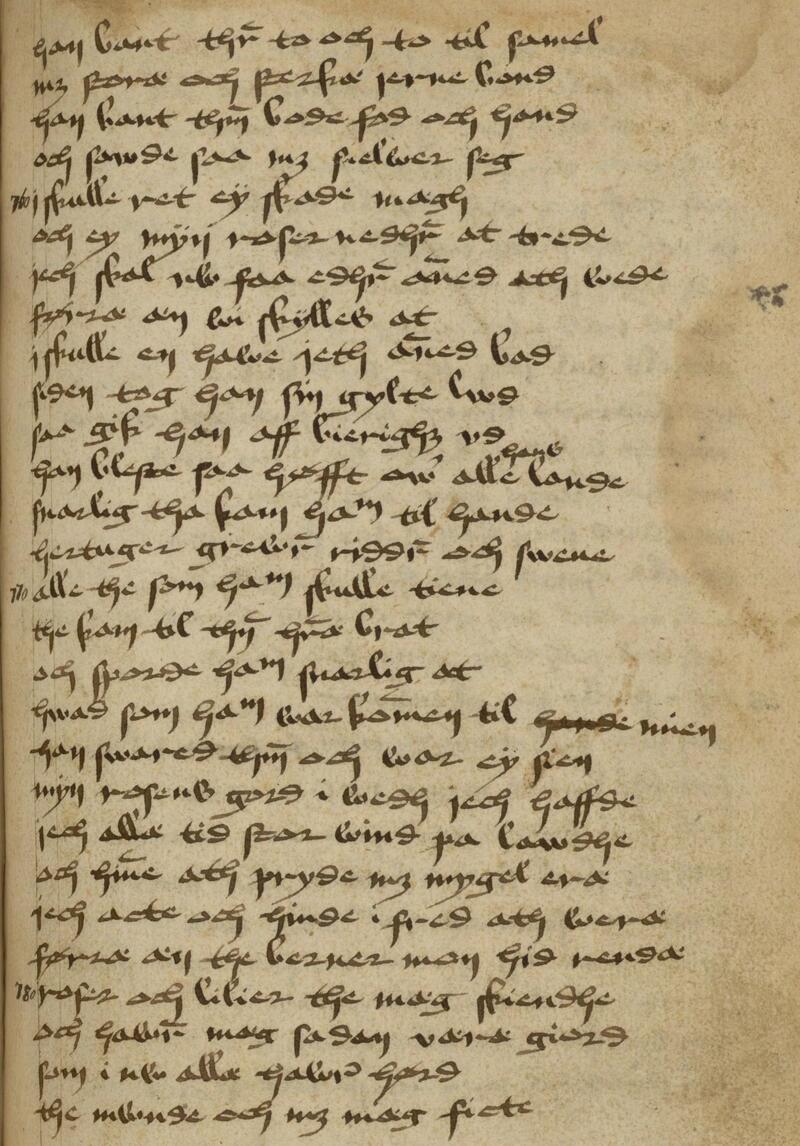 han bant thr̄ to och to til samel
mꝫ storæ och sterkæ jerne bond
han bant thm̄ bode fod och hand
och sawde saa mꝫ sielwer seg
760 j skulle ret ey skade magh
och ey myn roser nedhr̄ at trede
jech skal nw faa edhr̄ an̄ed ath wede
førræ æn wi skylles at
j skulle en hawe jeth an̄ed bad
siden tog han sin gylte lwd
saa gik han aff bierighꝫ vd
han bleste saa høfft ow̄ alle hans lande
snarlig tha kam ham til hande
hertuger grewr̄ riddr̄ och swene
770 alle the som ham skulle tiene
the kam til thn̄ hr̄æ brat
och sporde ham snarlig at
hwad som ham war kom̄en til hande mien
han swared thm̄ och war ey sien
myn rosens gord i wedh jech haffde
jech allæ tid stor wind pa lawdhe
och hin̄e ath pryde mꝫ mygel eræ
jech acte och hinde i fred ath weræ
førræ æn the berner mon hid rendæ
780 roser och lilier the mæg skiendhe
och hawr̄ mæg sadan væræ giord
som i nw allæ hawr̄ hørd
the mwnde och mꝫ mæg ficte